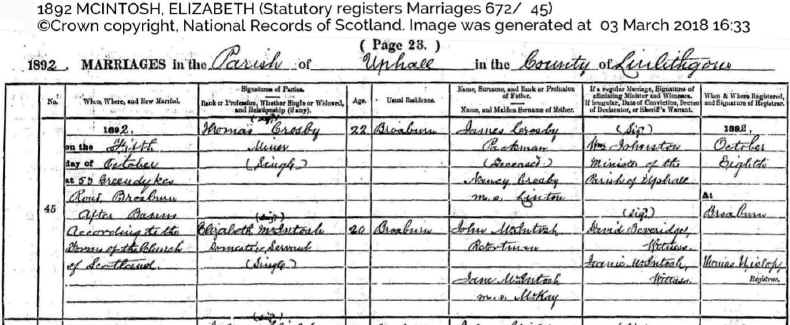 1892 MCINTOSH, ELIZABETH (Statutory registers Marriages 672/ 45)
©Crown copyright, National Records of Scotland. Image was generated at 03 March 2018 16:33
( Page 23. )
1892. MARRIAGES in the Parish of Uphall in the County of Linlithgow
No.
When, Where, and How Married.
Signatures of Parties.
Rank or Profession, Whether Single or Widowed, and Relationship (if any).
Age.
Usual Residence.
Name, Surname, and Rank or Profession of Father.
Name, and Maiden Surname of Mother.
If a regular Marriage, Signatures of officiating Minister and Witnesses.
If irregular, Date of Conviction, Decree of Declarator, or Sheriff's Warrant.
When & Where Registered, and Signature of Registrar.
45
1892,
on the Fifth
day of October
at 55 Greendykes
Road, Broxburn
After Banns
According to the
Forms of the Church
of Scotland.
(Sig.)
Thomas Crosby
Miner
(Single)
22
Broxburn
James Crosby
(Deceased)
Nancy Crosby
m.s. Linton
(Sig.)
Wm Johnston
Minister of the
Parish of Uphall
1892,
October
Eighth
At
Broxburn
(Sig.)
Elizabeth McIntosh
Domestic Servant
(Single)
20
Broxburn
John McIntosh
Retortman
Jane McIntosh
m.s. McKay
(Sig.)
David Beveridge,
Witness.
McIntosh,
Witness.
Thomas
Registrar.